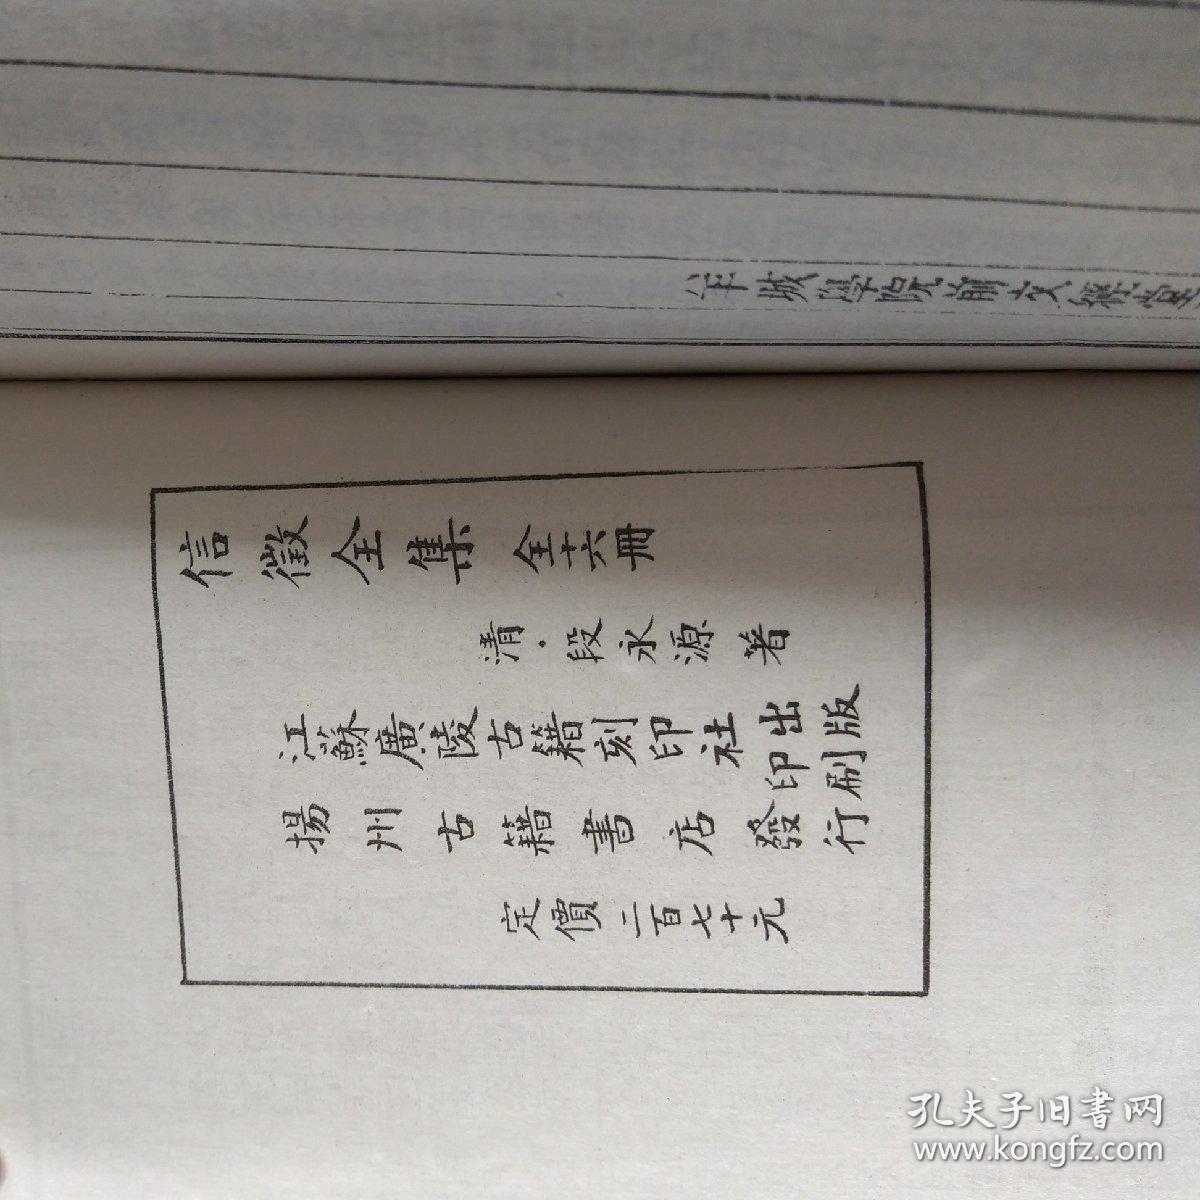 羊城學院前文經堂
信徵全集 全十六冊
清·段永源 著
江蘇廣陵古籍刻印社 出版
印刷
揚州古籍書店 發行
定價 二百七十元
孔夫子旧書网
www.kongfz.com